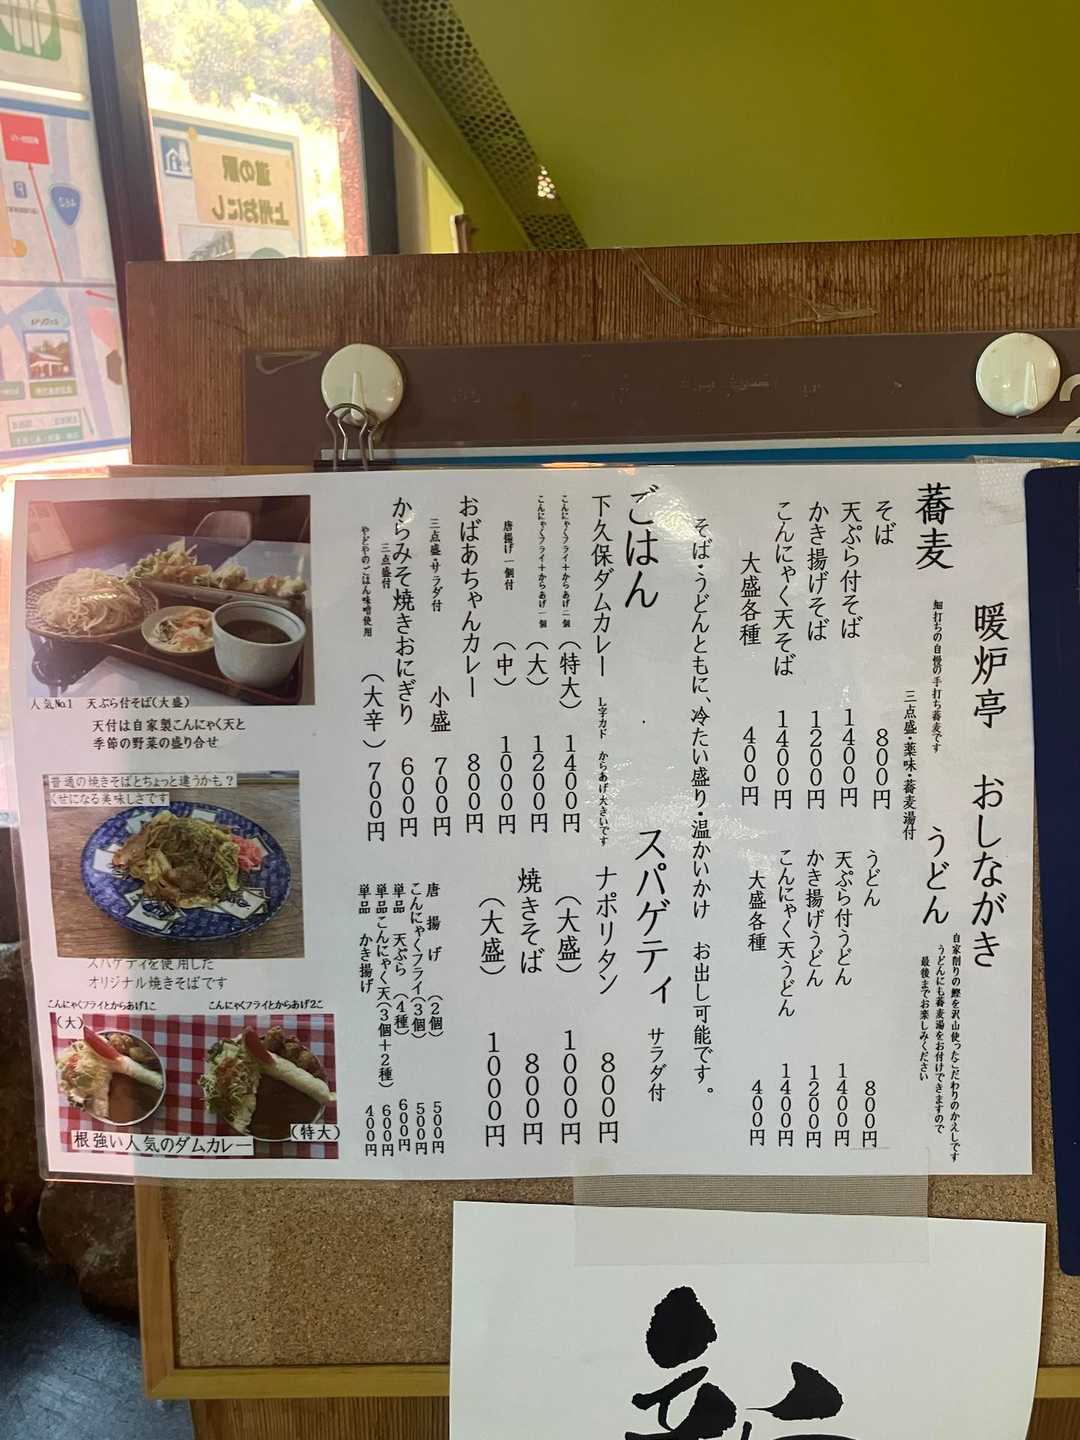 暖炉亭 おしながき
蕎麦
細打ちの自慢の手打ち蕎麦です
三点盛・薬味・蕎麦湯付
そば 800円
天ぷら付そば 1400円
かき揚げそば 1200円
こんにゃく天そば 1400円
大盛各種 400円
うどん
自家削りの鰹を沢山使ったこだわりのかえしです
うどんにも蕎麦湯をお付けできますので
最後までお楽しみください
うどん 800円
天ぷら付うどん 1400円
かき揚げうどん 1200円
こんにゃく天うどん 1400円
大盛各種 400円
そば・うどんともに、冷たい盛り・温かいかけ お出し可能です。
ごはん
下久保ダムカレー L字カド からあげ大きいです
こんにゃくフライ+からあげ二個 (特大) 1400円
こんにゃくフライ+からあげ一個 (大) 1200円
唐揚げ一個付 (中) 1000円
おばあちゃんカレー 800円
三点盛・サラダ付 小盛 700円
からみそ焼きおにぎり 600円
三点盛付
やどやのごはん味噌使用 (大辛) 700円
スパゲティ サラダ付
ナポリタン 800円
(大盛) 1000円
焼きそば 800円
(大盛) 1000円
唐揚げ (2個) 500円
こんにゃくフライ(3個) 500円
単品 天ぷら (4種) 600円
単品こんにゃく天(3個+2種) 600円
単品 かき揚げ 400円
人気No.1 天ぷら付そば(大盛)
天付は自家製こんにゃく天と
季節の野菜の盛り合せ
普通の焼きそばとちょっと違うかも?
くせになる美味しさです
スパゲティを使用した
オリジナル焼きそばです
こんにゃくフライとからあげ1こ
こんにゃくフライとからあげ2こ
(大)
(特大)
根強い人気のダムカレー
道の駅
上州おにし
P
462